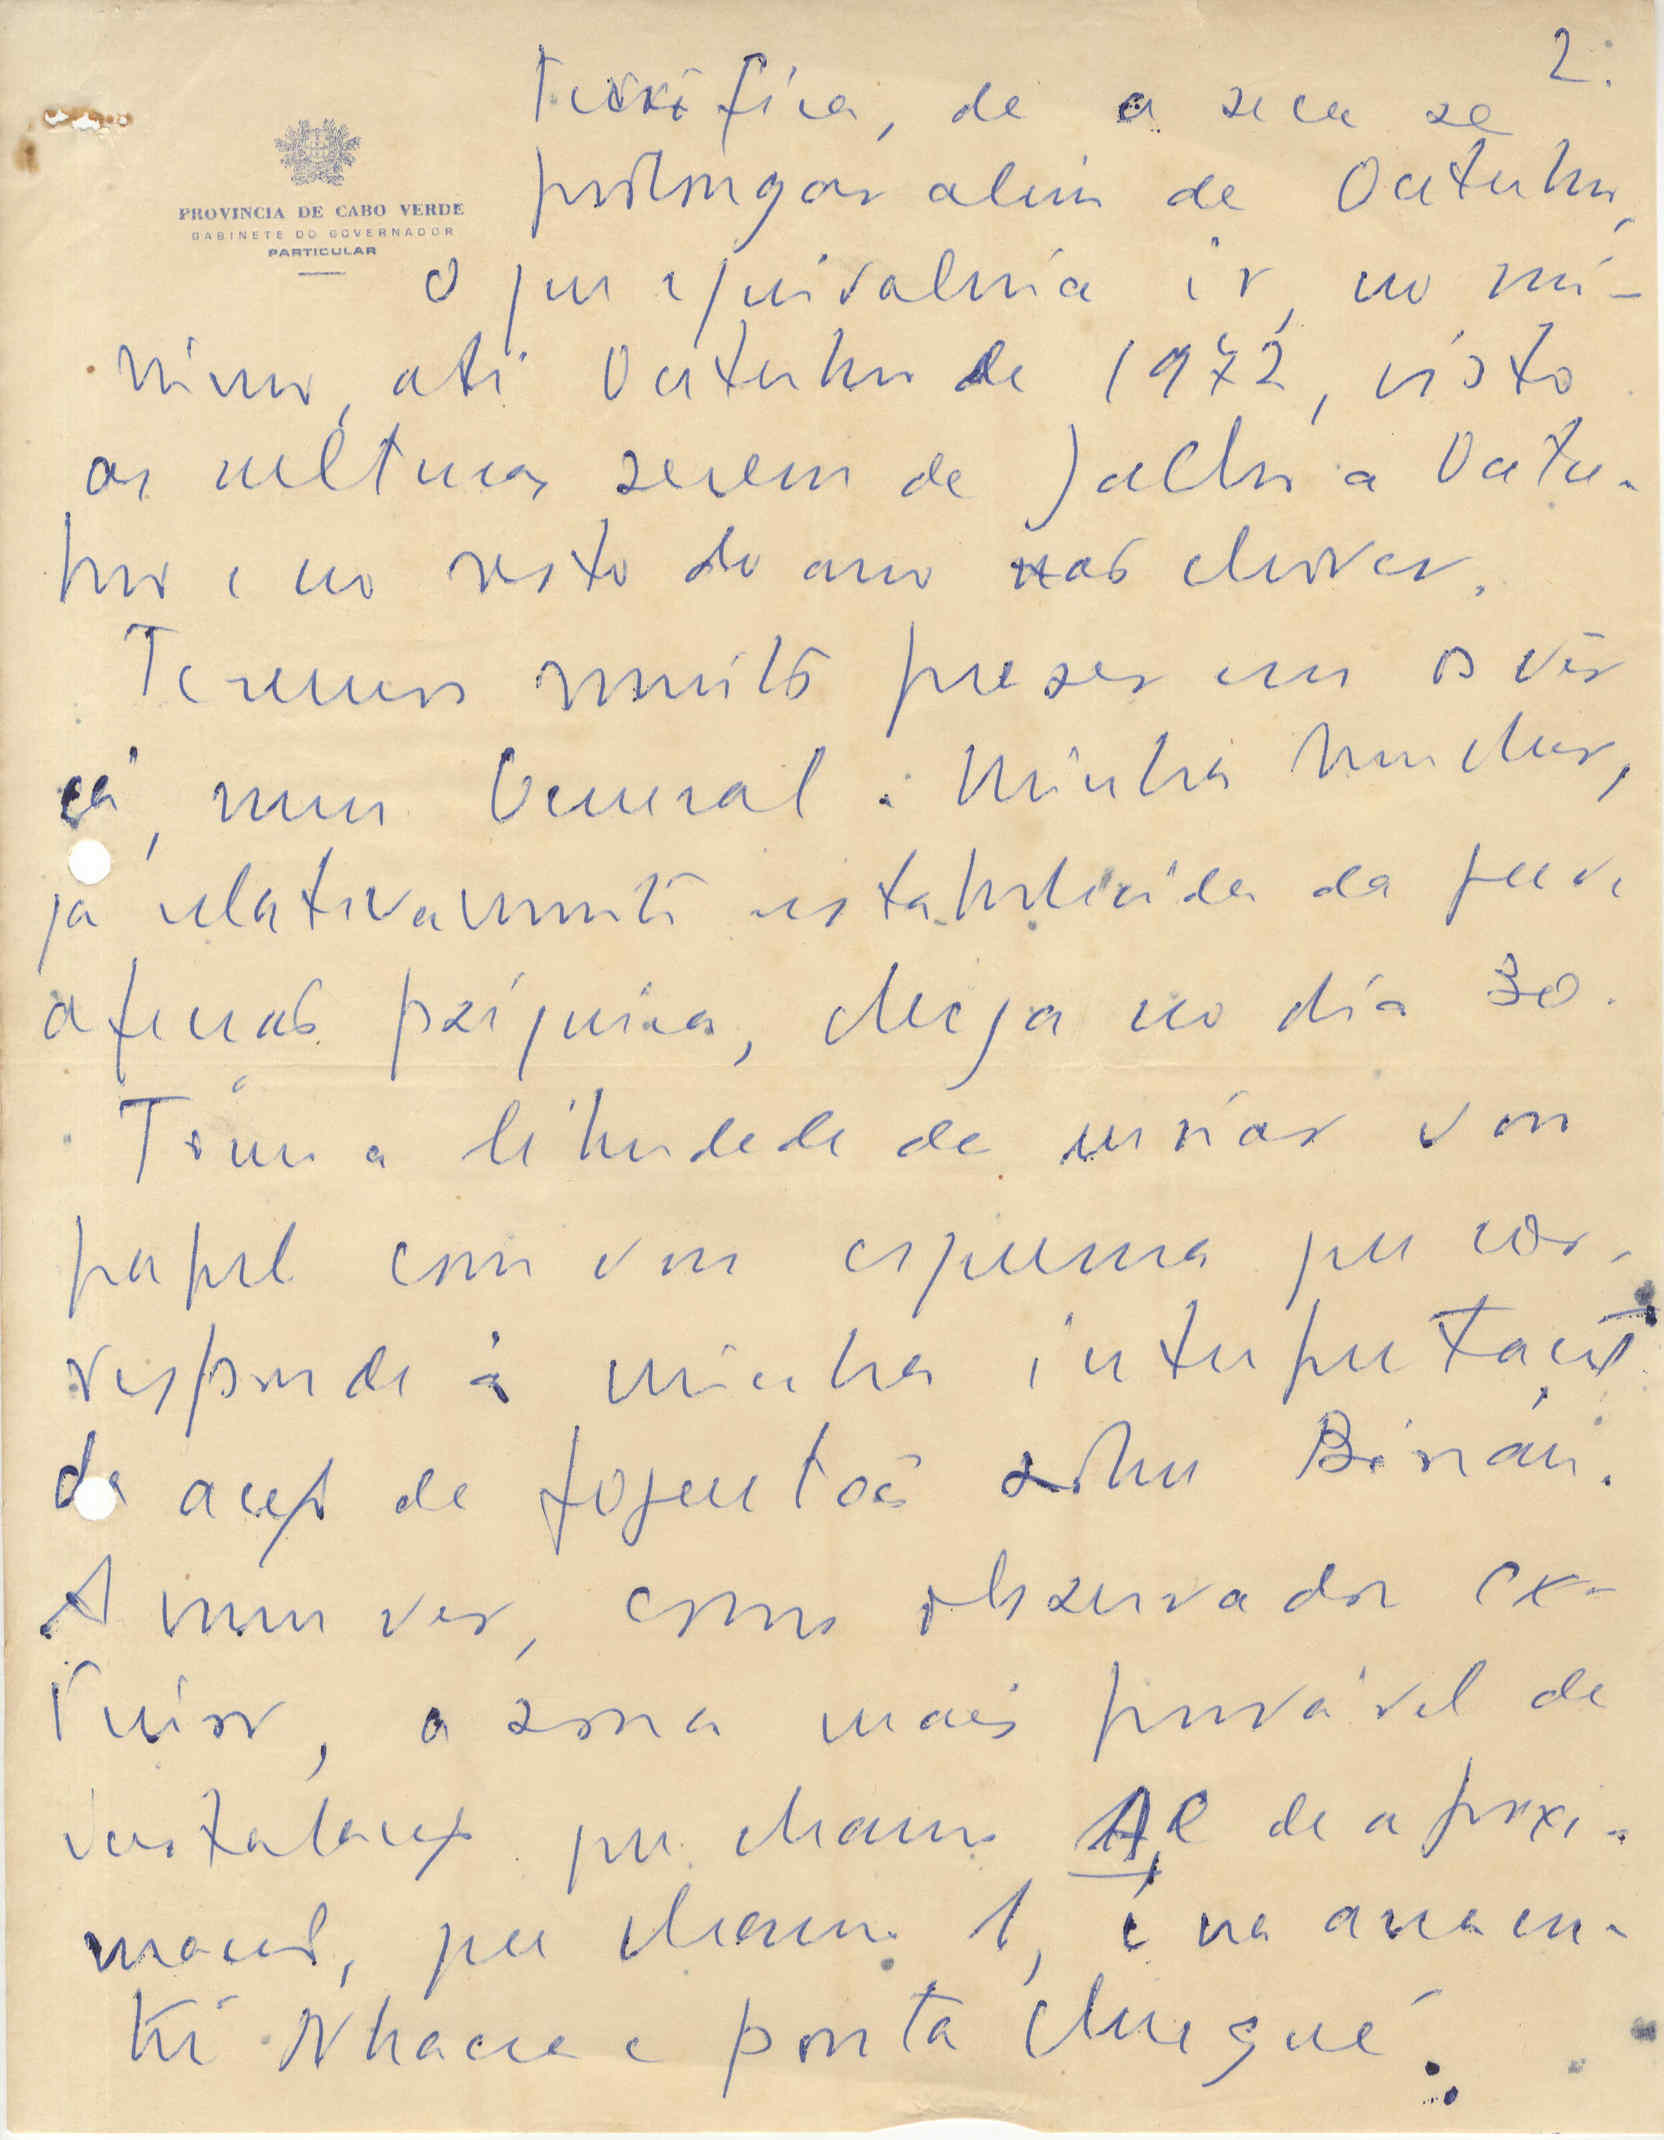 2.
PROVINCIA DE CABO VERDE
GABINETE DO GOVERNADOR
PARTICULAR
terrifica, de a seca se
prolongar alem de Outubro,
o que equivaleria ir, no mi-
nimo, até Outubro de 1972, visto
as culturas serem de Julho a Outu-
bro e no resto do ano não chover.
Teremos muito prazer em os vêr
cá, meu General. Minha mulher,
já relativamente restabelecida da greve
apenas psiquica, chega no dia 30.
Tomo a liberdade de enviar um
papel com um esquema que cor-
responde à minha interpretação
da acção de foguetões sobre Bissau.
A meu ver, como observador ex-
terior, a zona mais provável de
instalação que chamo A, e de aproxi-
mação, que chamo 1, é na area en-
tre Nhacra e ponta Chugué.